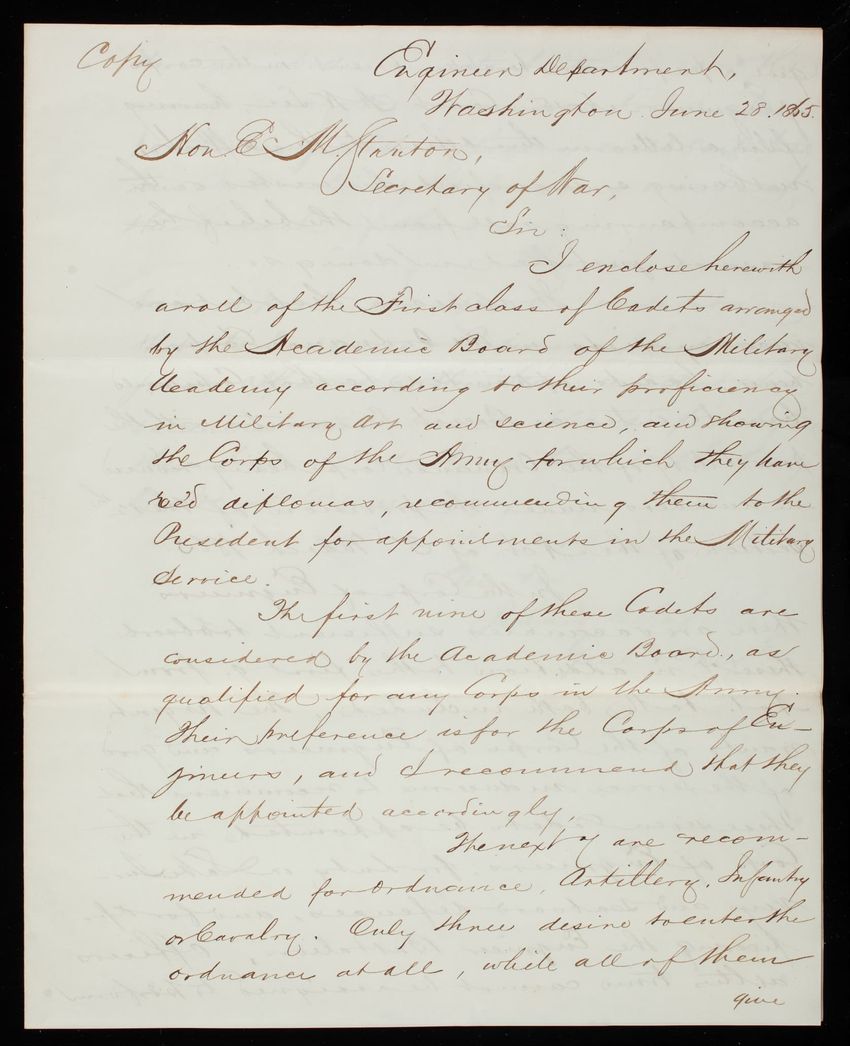 Copy
Engineer Department,
Washington June 28. 1865.
Hon. E. M. Stanton,
Secretary of War,
Sir:
I enclose herewith
a roll of the First class of Cadets arranged
by the Academic Board of the Military
Academy according to their proficiency
in Military Art and Science, and showing
the Corps of the Army for which they have
rec'd diplomas, recommending them to the
President for appointments in the Military
Service.
The first nine of these Cadets are
considered by the Academic Board, as
qualified for any Corps in the Army.
Their preference is for the Corps of En-
gineers, and I recommend that they
be appointed accordingly.
The next 7 are recom-
mended for Ordnance, Artillery, Infantry
or Cavalry. Only three desire to enter the
ordnance at all, while all of them
give